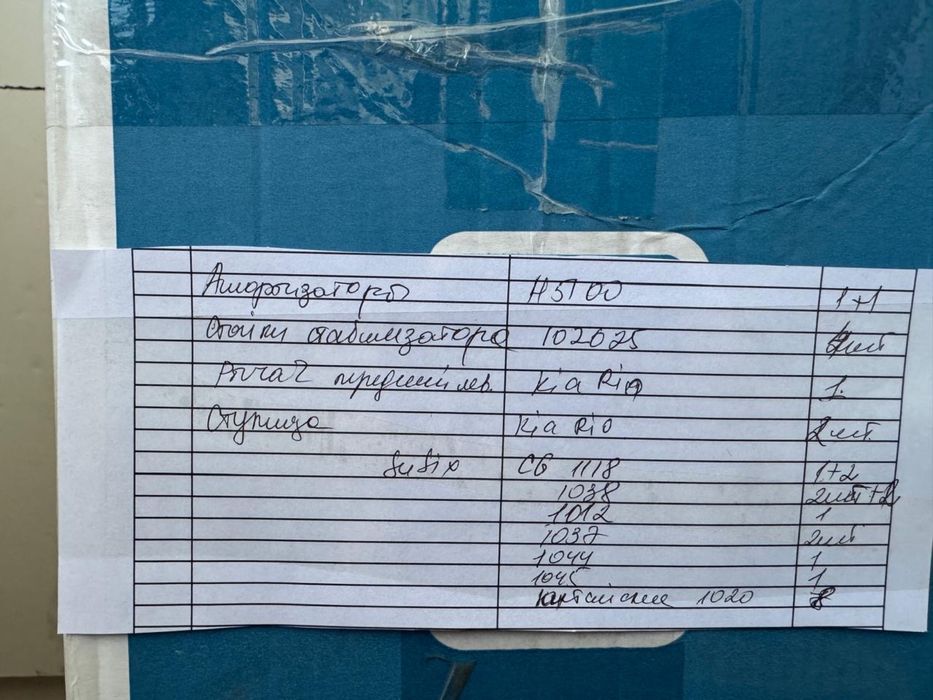 Амортизаторы H5100 1+1
Стойки стабилизатора 102025 шт
Рычаг передний лев. Kia Rio 1
Ступица Kia Rio 2шт.
Sufix CG 1118 1+2
1038 2шт+2
1012 1
1037 2шт
1044 1
1045 1
китайские 1020 8